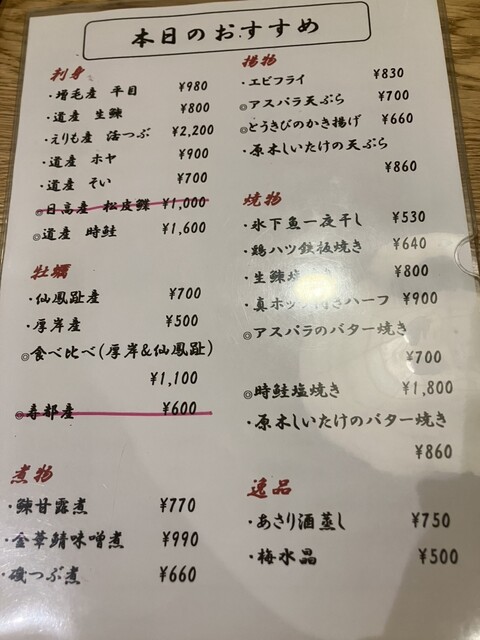 本日のおすすめ
刺身
・増毛産 平目 ¥980
・道産 生鰊 ¥800
・えりも産 活つぶ ¥2,200
・道産 ホヤ ¥900
・道産 そい ¥700
◎日高産 松皮鰈 ¥1,000
◎道産 時鮭 ¥1,600
牡蠣
・仙鳳趾産 ¥700
・厚岸産 ¥500
◎食べ比べ(厚岸&仙鳳趾)
¥1,100
◎寿都産 ¥600
煮物
・鰊甘露煮 ¥770
・金華鯖味噌煮 ¥990
・磯つぶ煮 ¥660
揚物
・エビフライ ¥830
◎アスパラ天ぷら ¥700
◎とうきびのかき揚げ ¥660
・原木しいたけの天ぷら
¥860
焼物
・氷下魚一夜干し ¥530
・鶏ハツ鉄板焼き ¥640
・生鰊塩焼き ¥800
・真ホッケ開きハーフ ¥900
◎アスパラのバター焼き
¥700
◎時鮭塩焼き ¥1,800
・原木しいたけのバター焼き
¥860
逸品
・あさり酒蒸し ¥750
・梅水晶 ¥500